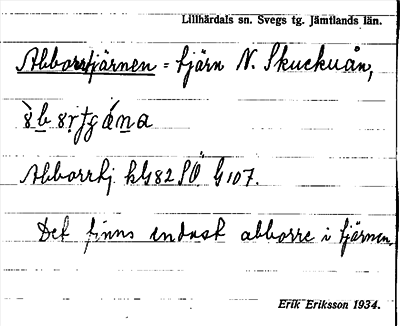 Lillhärdals sn. Svegs tg. Jämtlands län.
Abborrtjärnen = tjärn N. Skuckuån,
Abborrtj. kbl 82 SÖ G 107.
Det finns endast abborre i tjärnen.
Erik Eriksson 1934.